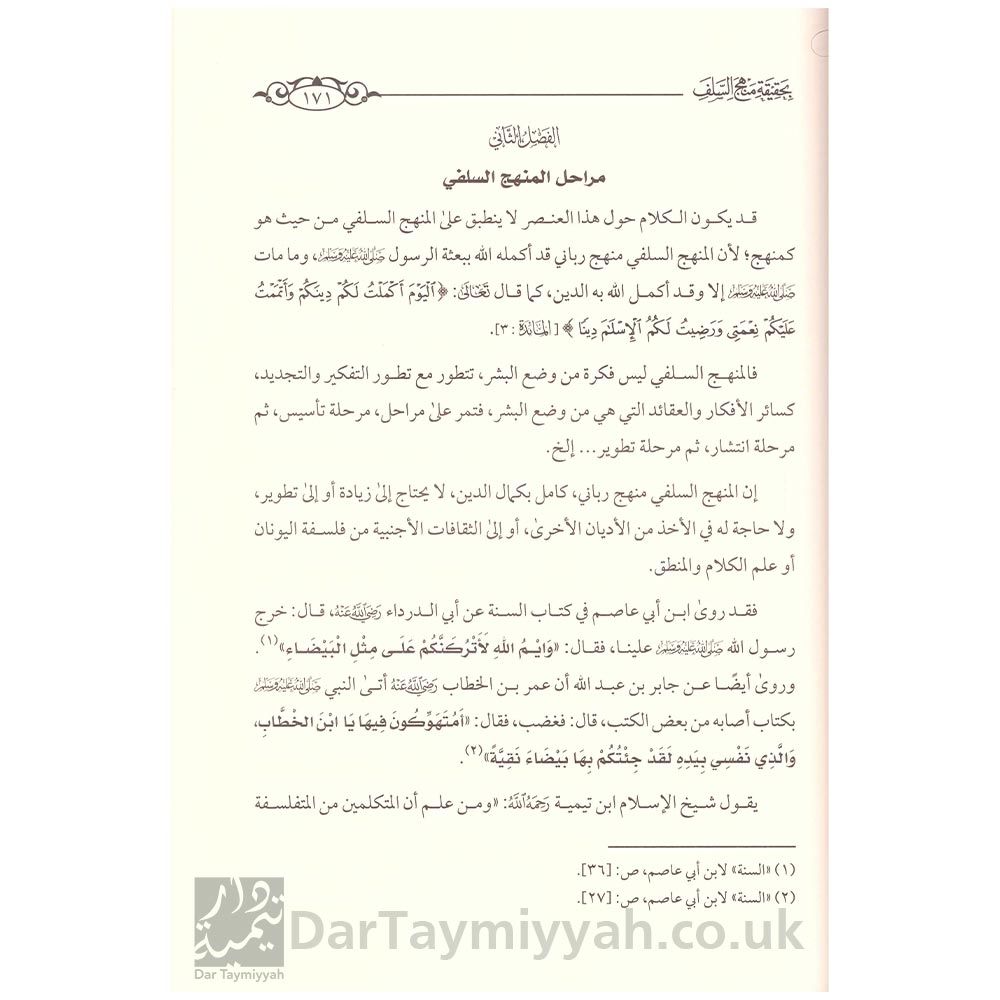 بحقيقة منهج السلف
١٧١
الفصل الثاني
مراحل المنهج السلفي
قد يكون الكلام حول هذا العنصر لا ينطبق علىٰ المنهج السلفي من حيث هو
كمنهج؛ لأن المنهج السلفي منهج رباني قد أكمله الله ببعثة الرسول ﷺ، وما مات
ﷺ إلا وقد أكمل الله به الدين، كما قال تعالى: ﴿ٱلْيَوْمَ أَكْمَلْتُ لَكُمْ دِينَكُمْ وَأَتْمَمْتُ
عَلَيْكُمْ نِعْمَتِى وَرَضِيتُ لَكُمُ ٱلْإِسْلَٰمَ دِينًا﴾ [المائدة: ٣].
فالمنهج السلفي ليس فكرة من وضع البشر، تتطور مع تطور التفكير والتجديد،
كسائر الأفكار والعقائد التي هي من وضع البشر، فتمر علىٰ مراحل، مرحلة تأسيس، ثم
مرحلة انتشار، ثم مرحلة تطوير... إلخ.
إن المنهج السلفي منهج رباني، كامل بكمال الدين، لا يحتاج إلىٰ زيادة أو إلىٰ تطوير،
ولا حاجة له في الأخذ من الأديان الأخرىٰ، أو إلىٰ الثقافات الأجنبية من فلسفة اليونان
أو علم الكلام والمنطق.
فقد روىٰ ابن أبي عاصم في كتاب السنة عن أبي الدرداء رَضِيَ اللَّهُ عَنْهُ، قال: خرج
رسول الله ﷺ علينا، فقال: «وَايْمُ اللهِ لَأَتْرُكَنَّكُمْ عَلَى مِثْلِ الْبَيْضَاءِ»(١).
وروىٰ أيضًا عن جابر بن عبد الله أن عمر بن الخطاب رَضِيَ اللَّهُ عَنْهُ أتىٰ النبي ﷺ
بكتاب أصابه من بعض الكتب، قال: فغضب، فقال: «أَمُتَهَوِّكُونَ فِيهَا يَا ابْنَ الْخَطَّابِ،
وَالَّذِي نَفْسِي بِيَدِهِ لَقَدْ جِئْتُكُمْ بِهَا بَيْضَاءَ نَقِيَّةً»(٢).
يقول شيخ الإسلام ابن تيمية رَحِمَهُ اللَّهُ: «ومن علم أن المتكلمين من المتفلسفة
(١) «السنة» لابن أبي عاصم، ص: [٣٦].
(٢) «السنة» لابن أبي عاصم، ص: [٢٧].
دار تيمية
Dar Taymiyyah
DarTaymiyyah.co.uk